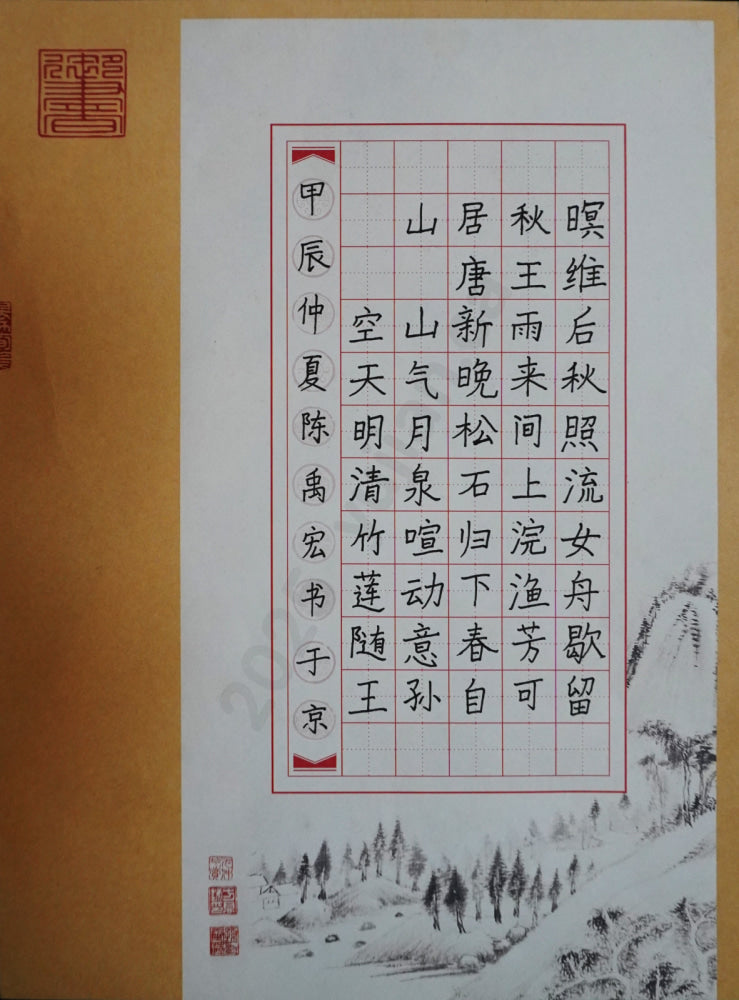 山居秋暝
唐王维
空山新雨后
天气晚来秋
明月松间照
清泉石上流
竹喧归浣女
莲动下渔舟
随意春芳歇
王孙自可留
甲辰仲夏陈禹宏书于京